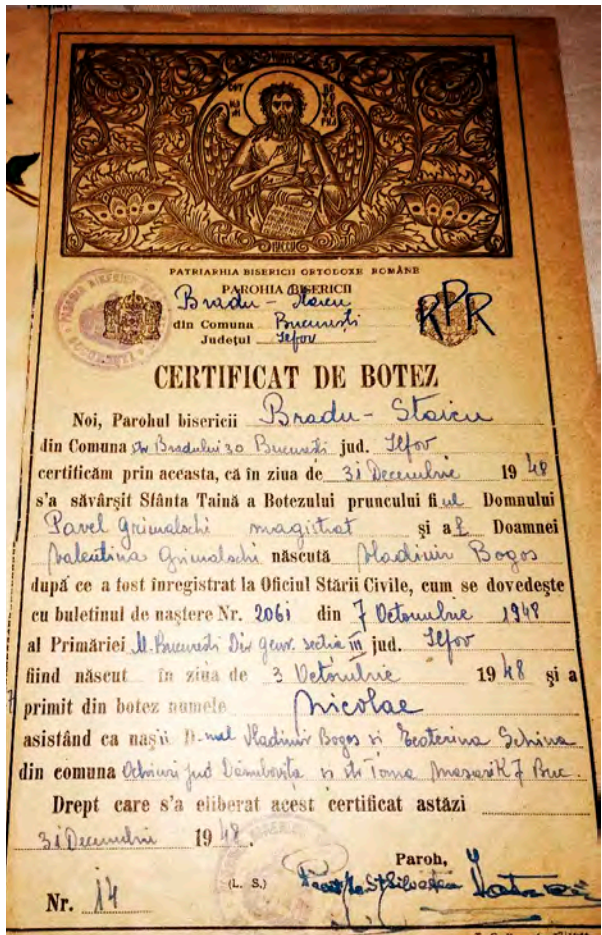 PATRIARHIA BISERICII ORTODOXE ROMÂNE
PAROHIA BISERICII
Bradu - Staicu
RPR
din Comuna Bucureşti
Judeţul Ilfov
CERTIFICAT DE BOTEZ
Noi, Parohul bisericii Bradu - Staicu
din Comuna str Bradului 30 Bucureşti jud. Ilfov
certificăm prin aceasta, că în ziua de 31 Decembrie 1948
s'a săvârşit Sfânta Taină a Botezului pruncului fiul Domnului
Pavel Grimalschi magistrat şi al Doamnei
Valentina Grimalschi născută Vladimir Bogos
după ce a fost înregistrat la Oficiul Stării Civile, cum se dovedeşte
cu buletinul de naştere Nr. 2061 din 7 Octombrie 1948
al Primăriei M. Bucureşti secţia III jud. Ilfov
fiind născut în ziua de 3 Octombrie 1948 şi a
primit din botez numele Nicolae
asistând ca naşi D-nul Vladimir Bogos si Ecaterina Schina
din comuna Ochiuri jud Dâmboviţa si str Toma Masarik 7 Buc.
Drept care s'a eliberat acest certificat astăzi
31 Decembrie 1948.
Paroh,
(L. S.)
Nr. 14